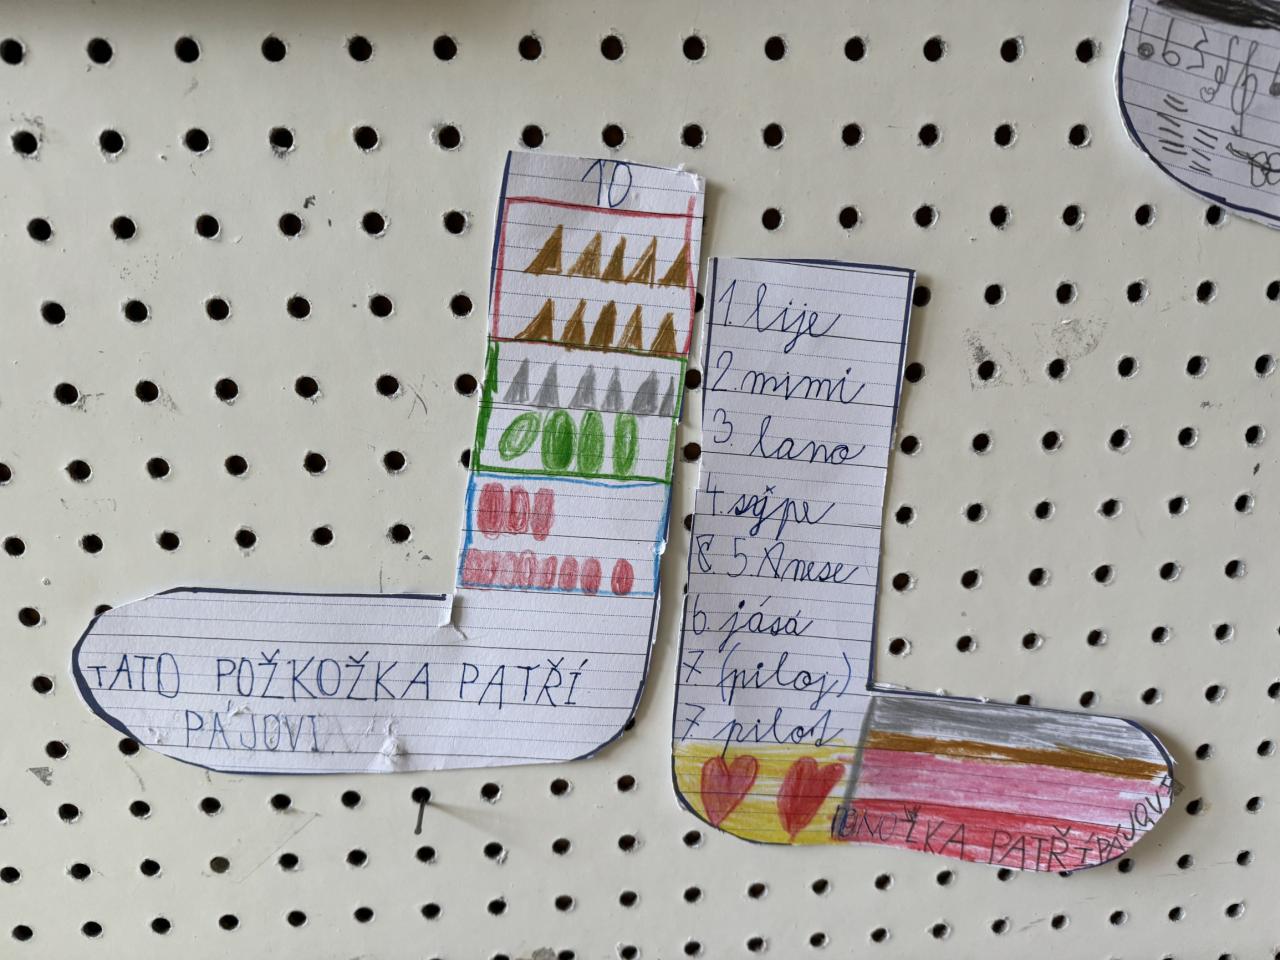 10
TATO POŽKOŽKA PATŘÍ
PÁJOVI
1. lije
2. mimi
3. lano
4. sýpe
5. Anese
6 jásá
7 (piloj)
7 pilot
PONOŽKA PATŘÍ PÁJOVI